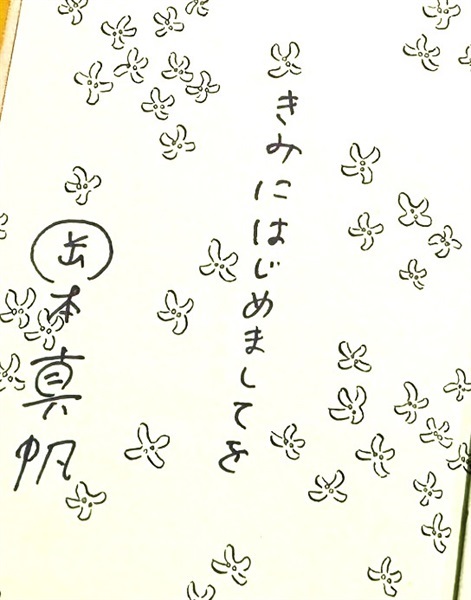 きみにはじめましてを
岡本真帆